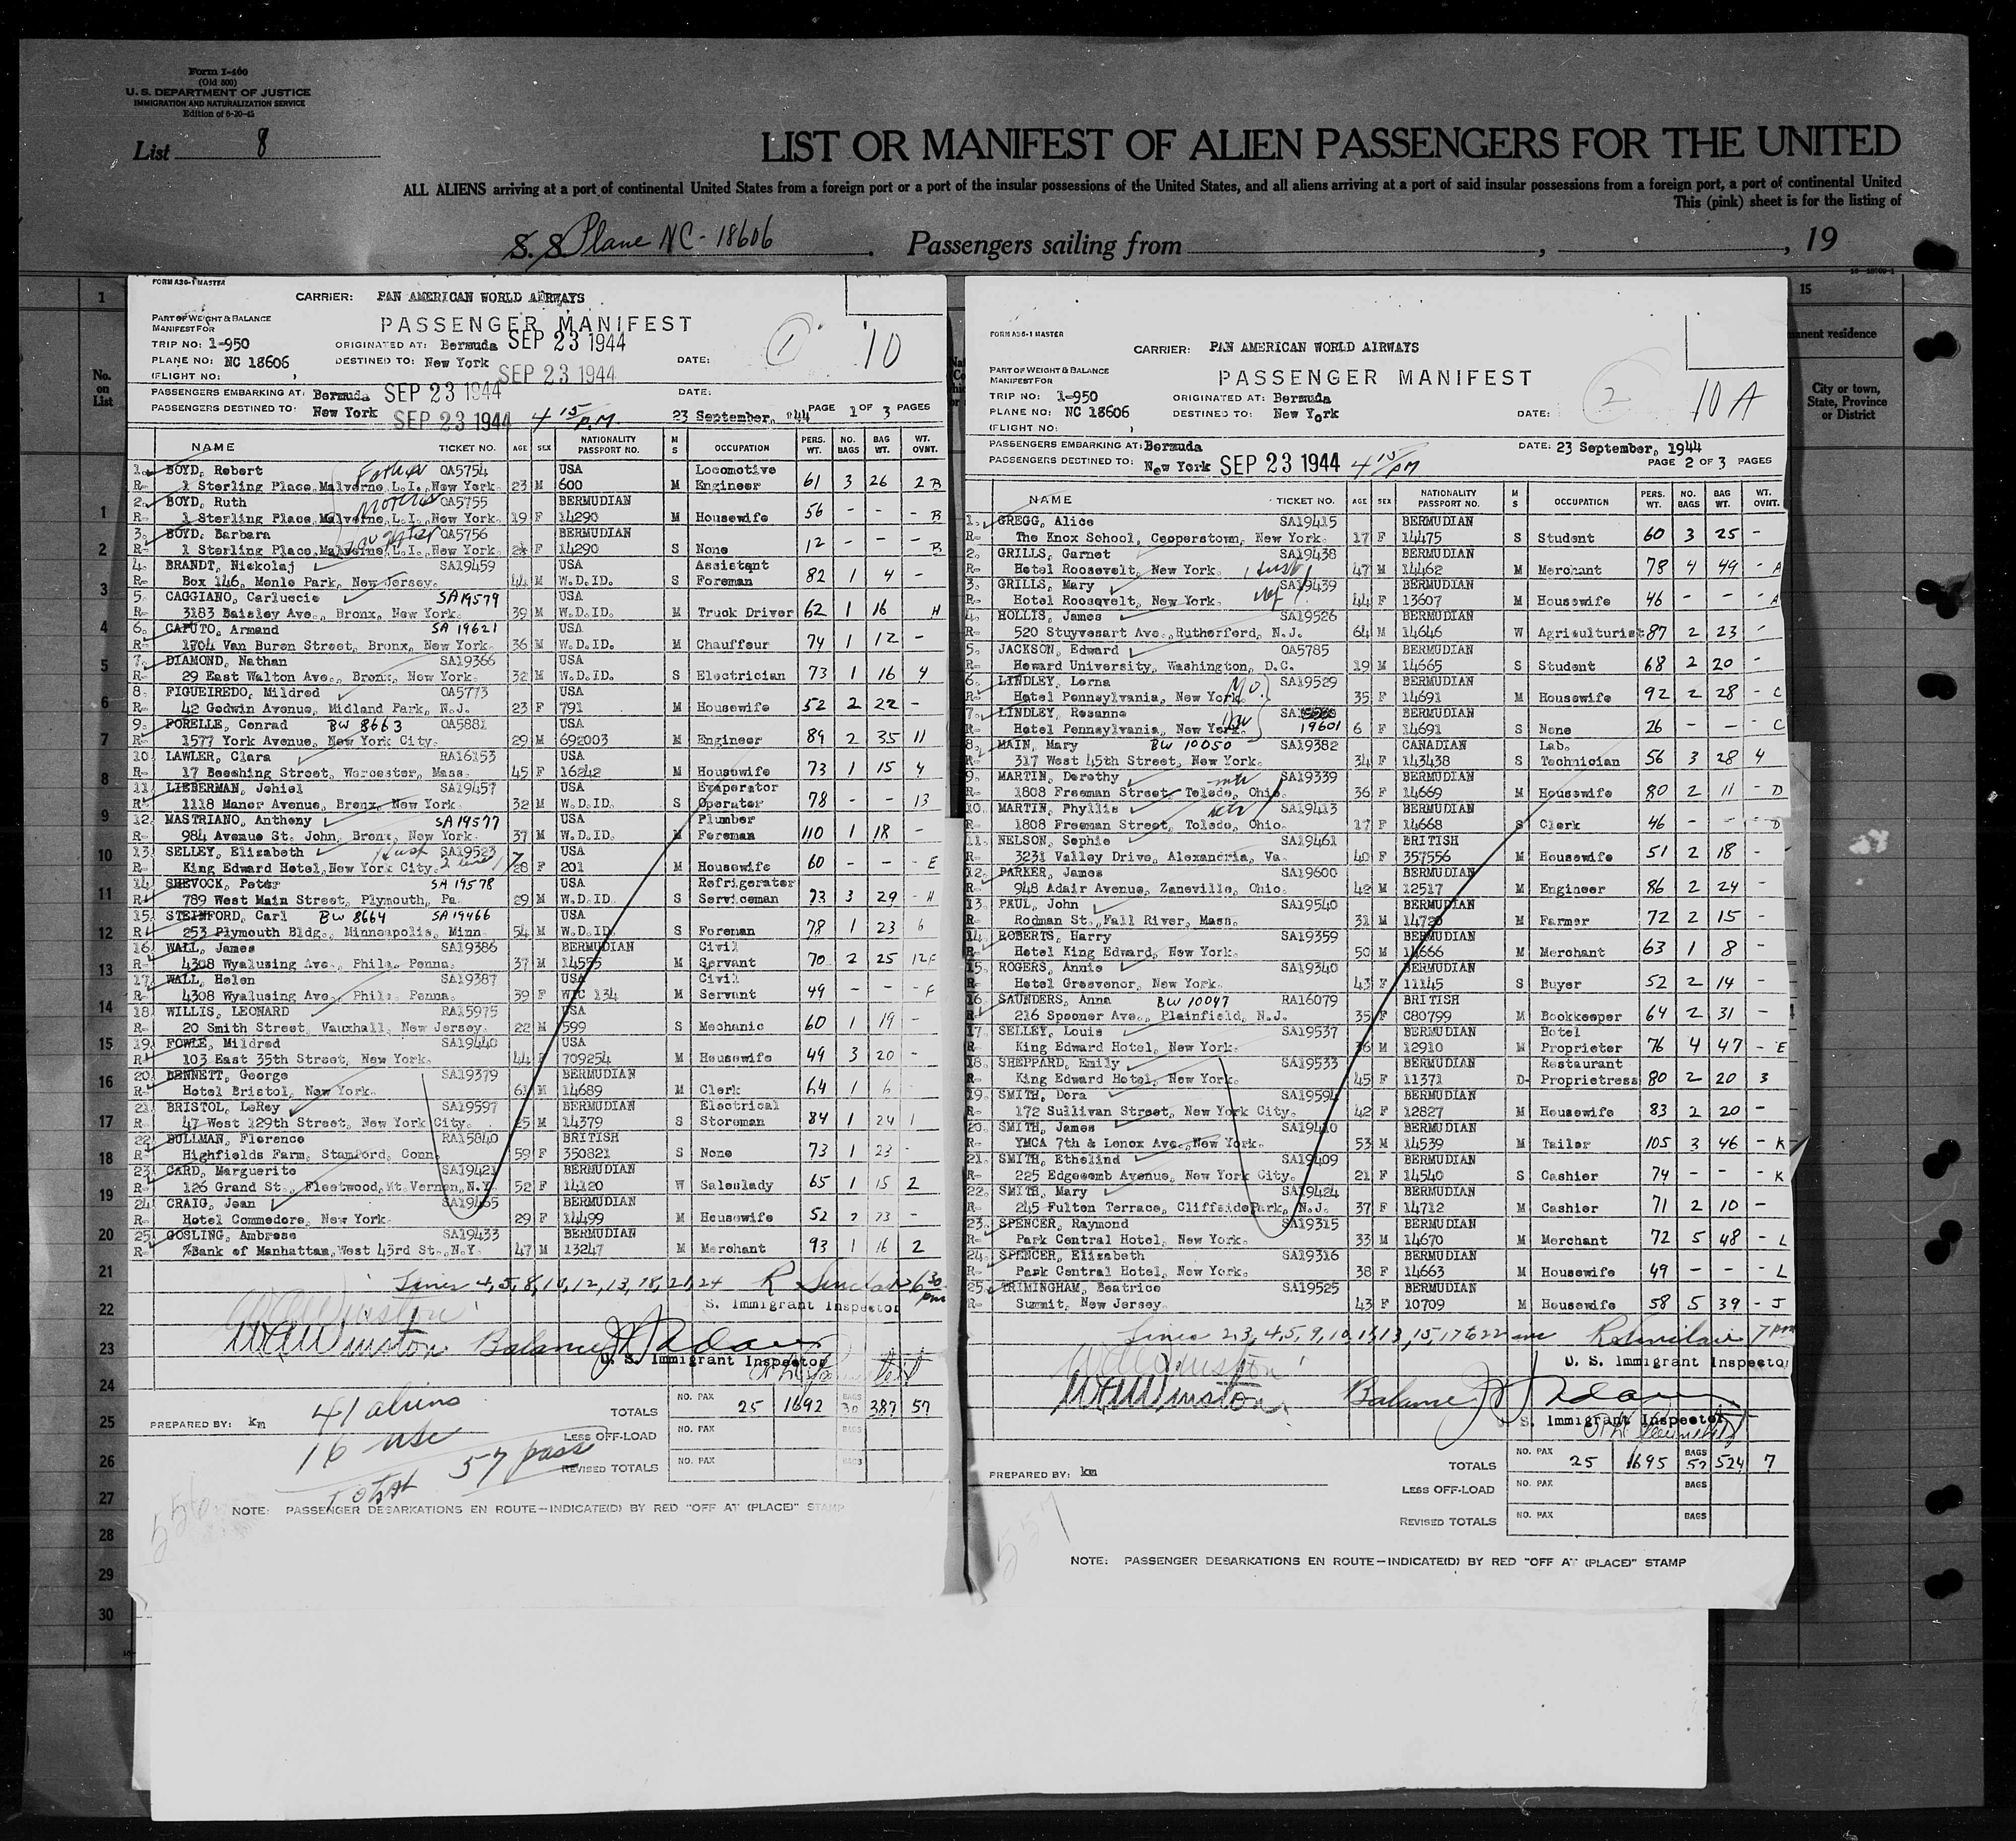 Form I-400
(Old 500)
U. S. DEPARTMENT OF JUSTICE
IMMIGRATION AND NATURALIZATION SERVICE
List 8
LIST OR MANIFEST OF ALIEN PASSENGERS FOR THE UNITED
ALL ALIENS arriving at a port of continental United States from a foreign port or a port of the insular possessions of the United States, and all aliens arriving at a port of said insular possessions from a foreign port, a port of continental United
This (pink) sheet is for the listing of
S. S. Plane NC-18606. Passengers sailing from , , 19
No. on List
15
manent residence
City or town, State, Province or District
FORM A36-1 MASTER
CARRIER: PAN AMERICAN WORLD AIRWAYS
PART OF WEIGHT & BALANCE
MANIFEST FOR
PASSENGER MANIFEST
1 10
TRIP NO: 1-950 ORIGINATED AT: Bermuda SEP 23 1944
PLANE NO: NC 18606 DESTINED TO: New York SEP 23 1944 DATE:
(FLIGHT NO: )
PASSENGERS EMBARKING AT: Bermuda SEP 23 1944 DATE:
PASSENGERS DESTINED TO: New York SEP 23 1944 4 15 P.M. 23 September, 44 PAGE 1 OF 3 PAGES
NAME TICKET NO. AGE SEX NATIONALITY PASSPORT NO. M S OCCUPATION PERS. WT. NO. BAGS BAG WT. WT. OVNT.
1. BOYD, Robert Father OA5754 USA Locomotive
R- 1 Sterling Place, Malverne, L.I., New York. 23 M 600 M Engineer 61 3 26 2 B
2. BOYD, Ruth Mother OA5755 BERMUDIAN
R- 1 Sterling Place, Malverne, L.I., New York. 19 F 14290 M Housewife 56 - - - B
3. BOYD, Barbara Daughter OA5756 BERMUDIAN
R- 1 Sterling Place, Malverne, L.I., New York. F 14290 S None 12 - - - B
4. BRANDT, Nickolaj SA19459 USA Assistant
R- Box 146, Menlo Park, New Jersey. 44 M W.D.ID. S Foreman 82 1 4 -
5. CAGGIANO, Carluccio SA19579 USA
R- 3183 Baisley Ave., Bronx, New York. 39 M W.D.ID. M Truck Driver 62 1 16 H
6. CAPUTO, Armand SA 19621 USA
R- 1704 Van Buren Street, Bronx, New York. 36 M W.D.ID. M Chauffeur 74 1 12 -
7. DIAMOND, Nathan SA19366 USA
R- 29 East Walton Ave., Bronx, New York. 32 M W.D.ID. S Electrician 73 1 16 4
8. FIGUEIREDO, Mildred OA5773 USA
R- 42 Godwin Avenue, Midland Park, N.J. 23 F 791 M Housewife 52 2 22 -
9. FORELLE, Conrad BW 8663 OA5881 USA
R- 1577 York Avenue, New York City. 29 M 692003 M Engineer 89 2 35 11
10. LAWLER, Clara RA16153 USA
R- 17 Beeching Street, Worcester, Mass. 45 F 16242 M Housewife 73 1 15 4
11. LIEBERMAN, Jehiel SA19457 USA Evaporator
R- 1118 Manor Avenue, Bronx, New York. 32 M W.D.ID. S Operator 78 - - 13
12. MASTRIANO, Anthony SA19577 USA Plumber
R- 984 Avenue St. John, Bronx, New York. 37 M W.D.ID. M Foreman 110 1 18 -
13. SELLEY, Elizabeth SA19523 USA
R- King Edward Hotel, New York City. 28 F 201 M Housewife 60 - - - E
14. SHEVOCK, Peter SA 19578 USA Refrigerator
R- 789 West Main Street, Plymouth, Pa. 29 M W.D.ID S Serviceman 73 3 29 - H
15. STEINFORD, Carl BW 8664 SA19466 USA
R- 253 Plymouth Bldg., Minneapolis, Minn. 54 M W.D.ID. S Foreman 78 1 23 6
16. WALL, James SA19386 BERMUDIAN Civil
R- 4308 Wyalusing Ave., Phila. Penna. 37 M 14555 M Servant 70 2 25 12 F
17. WALL, Helen SA19387 USA Civil
R- 4308 Wyalusing Ave., Phila. Penna. 39 F WIC 134 M Servant 49 - - - F
18. WILLIS, LEONARD RA15975 USA
R- 20 Smith Street, Vauxhall, New Jersey. 22 M 599 S Mechanic 60 1 19 -
19. FOWLE, Mildred SA19440 USA
R- 103 East 35th Street, New York. 44 F 709254 M Housewife 49 3 20 -
20. BENNETT, George SA19379 BERMUDIAN
R- Hotel Bristol, New York. 61 M 14689 M Clerk 64 1 6
21. BRISTOL, LeRoy SA19597 BERMUDIAN Electrical
R- 47 West 129th Street, New York City. 25 M 14379 S Storeman 84 1 24 1
22. BULLMAN, Florence RA15840 BRITISH
R- Highfields Farm, Stamford, Conn. 59 F 350821 S None 73 1 23 -
23. CARD, Marguerite SA19421 BERMUDIAN
R- 126 Grand St., Fleetwood, Mt. Vernon, N.Y. 52 F 14120 W Saleslady 65 1 15 2
24. CRAIG, Jean SA19465 BERMUDIAN
R- Hotel Commodore, New York. 29 F 14499 M Housewife 52 2 23 -
25. GOSLING, Ambrose SA19433 BERMUDIAN
R- %Bank of Manhattan, West 43rd St., N.Y. 47 M 13247 M Merchant 93 1 16 2
Lines 4, 5, 8, 10, 12, 13, 18, 21, 24 R Sinclair 6 30 pm
S. Immigrant Inspector
Balance
U. S. Immigrant Inspector
TOTALS NO. PAX 25 1692 BAGS 30 387 57
PREPARED BY: km
41 aliens
16 usc
Total 57 pass
LESS OFF-LOAD NO. PAX BAGS
REVISED TOTALS NO. PAX BAGS
NOTE: PASSENGER DEBARKATIONS EN ROUTE—INDICATE(D) BY RED "OFF AT (PLACE)" STAMP
FORM A36-1 MASTER
CARRIER: PAN AMERICAN WORLD AIRWAYS
PART OF WEIGHT & BALANCE
MANIFEST FOR
PASSENGER MANIFEST
2 10 A
TRIP NO: 1-950 ORIGINATED AT: Bermuda
PLANE NO: NC 18606 DESTINED TO: New York DATE:
(FLIGHT NO: )
PASSENGERS EMBARKING AT: Bermuda DATE: 23 September, 1944
PASSENGERS DESTINED TO: New York SEP 23 1944 4 15 PM PAGE 2 OF 3 PAGES
NAME TICKET NO. AGE SEX NATIONALITY PASSPORT NO. M S OCCUPATION PERS. WT. NO. BAGS BAG WT. WT. OVNT.
1. GREGG, Alice SA19415 BERMUDIAN
R- The Knox School, Cooperstown, New York. 17 F 14475 S Student 60 3 25 -
2. GRILLS, Garnet SA19438 BERMUDIAN
R- Hotel Roosevelt, New York. 47 M 14462 M Merchant 78 4 49 - A
3. GRILLS, Mary SA19439 BERMUDIAN
R- Hotel Roosevelt, New York. 44 F 13607 M Housewife 46 - - - A
4. HOLLIS, James SA19526 BERMUDIAN
R- 520 Stuyvesart Ave., Rutherford, N.J. 64 M 14646 W Agriculturist 87 2 23 -
5. JACKSON, Edward OA5785 BERMUDIAN
R- Howard University, Washington, D.C. 19 M 14665 S Student 68 2 20 -
6. LINDLEY, Lorna Mo. SA19529 BERMUDIAN
R- Hotel Pennsylvania, New York. 35 F 14691 M Housewife 92 2 28 - C
7. LINDLEY, Rosanne SA 19601 BERMUDIAN
R- Hotel Pennsylvania, New York. 6 F 14691 S None 26 - - C
8. MAIN, Mary BW 10050 SA19382 CANADIAN Lab.
R- 317 West 45th Street, New York. 34 F 143438 S Technician 56 3 28 4
9. MARTIN, Dorothy SA19339 BERMUDIAN
R- 1808 Freeman Street, Toledo, Ohio. 36 F 14669 M Housewife 80 2 11 - D
10. MARTIN, Phyllis SA19413 BERMUDIAN
R- 1808 Freeman Street, Toledo, Ohio. 17 F 14668 S Clerk 46 - - D
11. NELSON, Sophie SA19461 BRITISH
R- 3231 Valley Drive, Alexandria, Va. 40 F 357556 M Housewife 51 2 18 -
12. PARKER, James SA19600 BERMUDIAN
R- 948 Adair Avenue, Zanesville, Ohio. 42 M 12517 M Engineer 86 2 24 -
13. PAUL, John SA19540 BERMUDIAN
R- Rodman St., Fall River, Mass. 31 M 14720 M Farmer 72 2 15 -
14. ROBERTS, Harry SA19359 BERMUDIAN
R- Hotel King Edward, New York. 50 M 14666 M Merchant 63 1 8 -
15. ROGERS, Annie SA19340 BERMUDIAN
R- Hotel Grosvenor, New York. 43 F 11145 S Buyer 52 2 14 -
16. SAUNDERS, Anna BW 10047 RA16079 BRITISH
R- 216 Spooner Ave., Plainfield, N.J. 35 F C80799 M Bookkeeper 64 2 31 -
17. SELLEY, Louis SA19537 BERMUDIAN Hotel
R- King Edward Hotel, New York. 36 M 12910 M Proprietor 76 4 47 - E
18. SHEPPARD, Emily SA19533 BERMUDIAN Restaurant
R- King Edward Hotel, New York. 45 F 11371 D- Proprietress 80 2 20 3
19. SMITH, Dora SA19594 BERMUDIAN
R- 172 Sullivan Street, New York City. 42 F 12827 M Housewife 83 2 20 -
20. SMITH, James SA19410 BERMUDIAN
R- YMCA 7th & Lenox Ave., New York. 53 M 14539 M Tailor 105 3 46 - K
21. SMITH, Ethelind SA19409 BERMUDIAN
R- 225 Edgecomb Avenue, New York City. 21 F 14540 S Cashier 74 - - - K
22. SMITH, Mary SA19424 BERMUDIAN
R- 245 Fulton Terrace, Cliffside Park, N.J. 37 F 14712 M Cashier 71 2 10 -
23. SPENCER, Raymond SA19315 BERMUDIAN
R- Park Central Hotel, New York. 33 M 14670 M Merchant 72 5 48 - L
24. SPENCER, Elizabeth SA19316 BERMUDIAN
R- Park Central Hotel, New York. 38 F 14663 M Housewife 49 - - - L
25. TRIMINGHAM, Beatrice SA19525 BERMUDIAN
R- Summit, New Jersey. 43 F 10709 M Housewife 58 5 39 - J
Lines 2, 3, 4, 5, 9, 10, 13, 15, 17 to 22 R Sinclair 7 pm
U. S. Immigrant Inspector
Balance
S. Immigrant Inspector
TOTALS NO. PAX 25 1695 BAGS 52 524 7
PREPARED BY: km
LESS OFF-LOAD NO. PAX BAGS
REVISED TOTALS NO. PAX BAGS
NOTE: PASSENGER DEBARKATIONS EN ROUTE—INDICATE(D) BY RED "OFF AT (PLACE)" STAMP